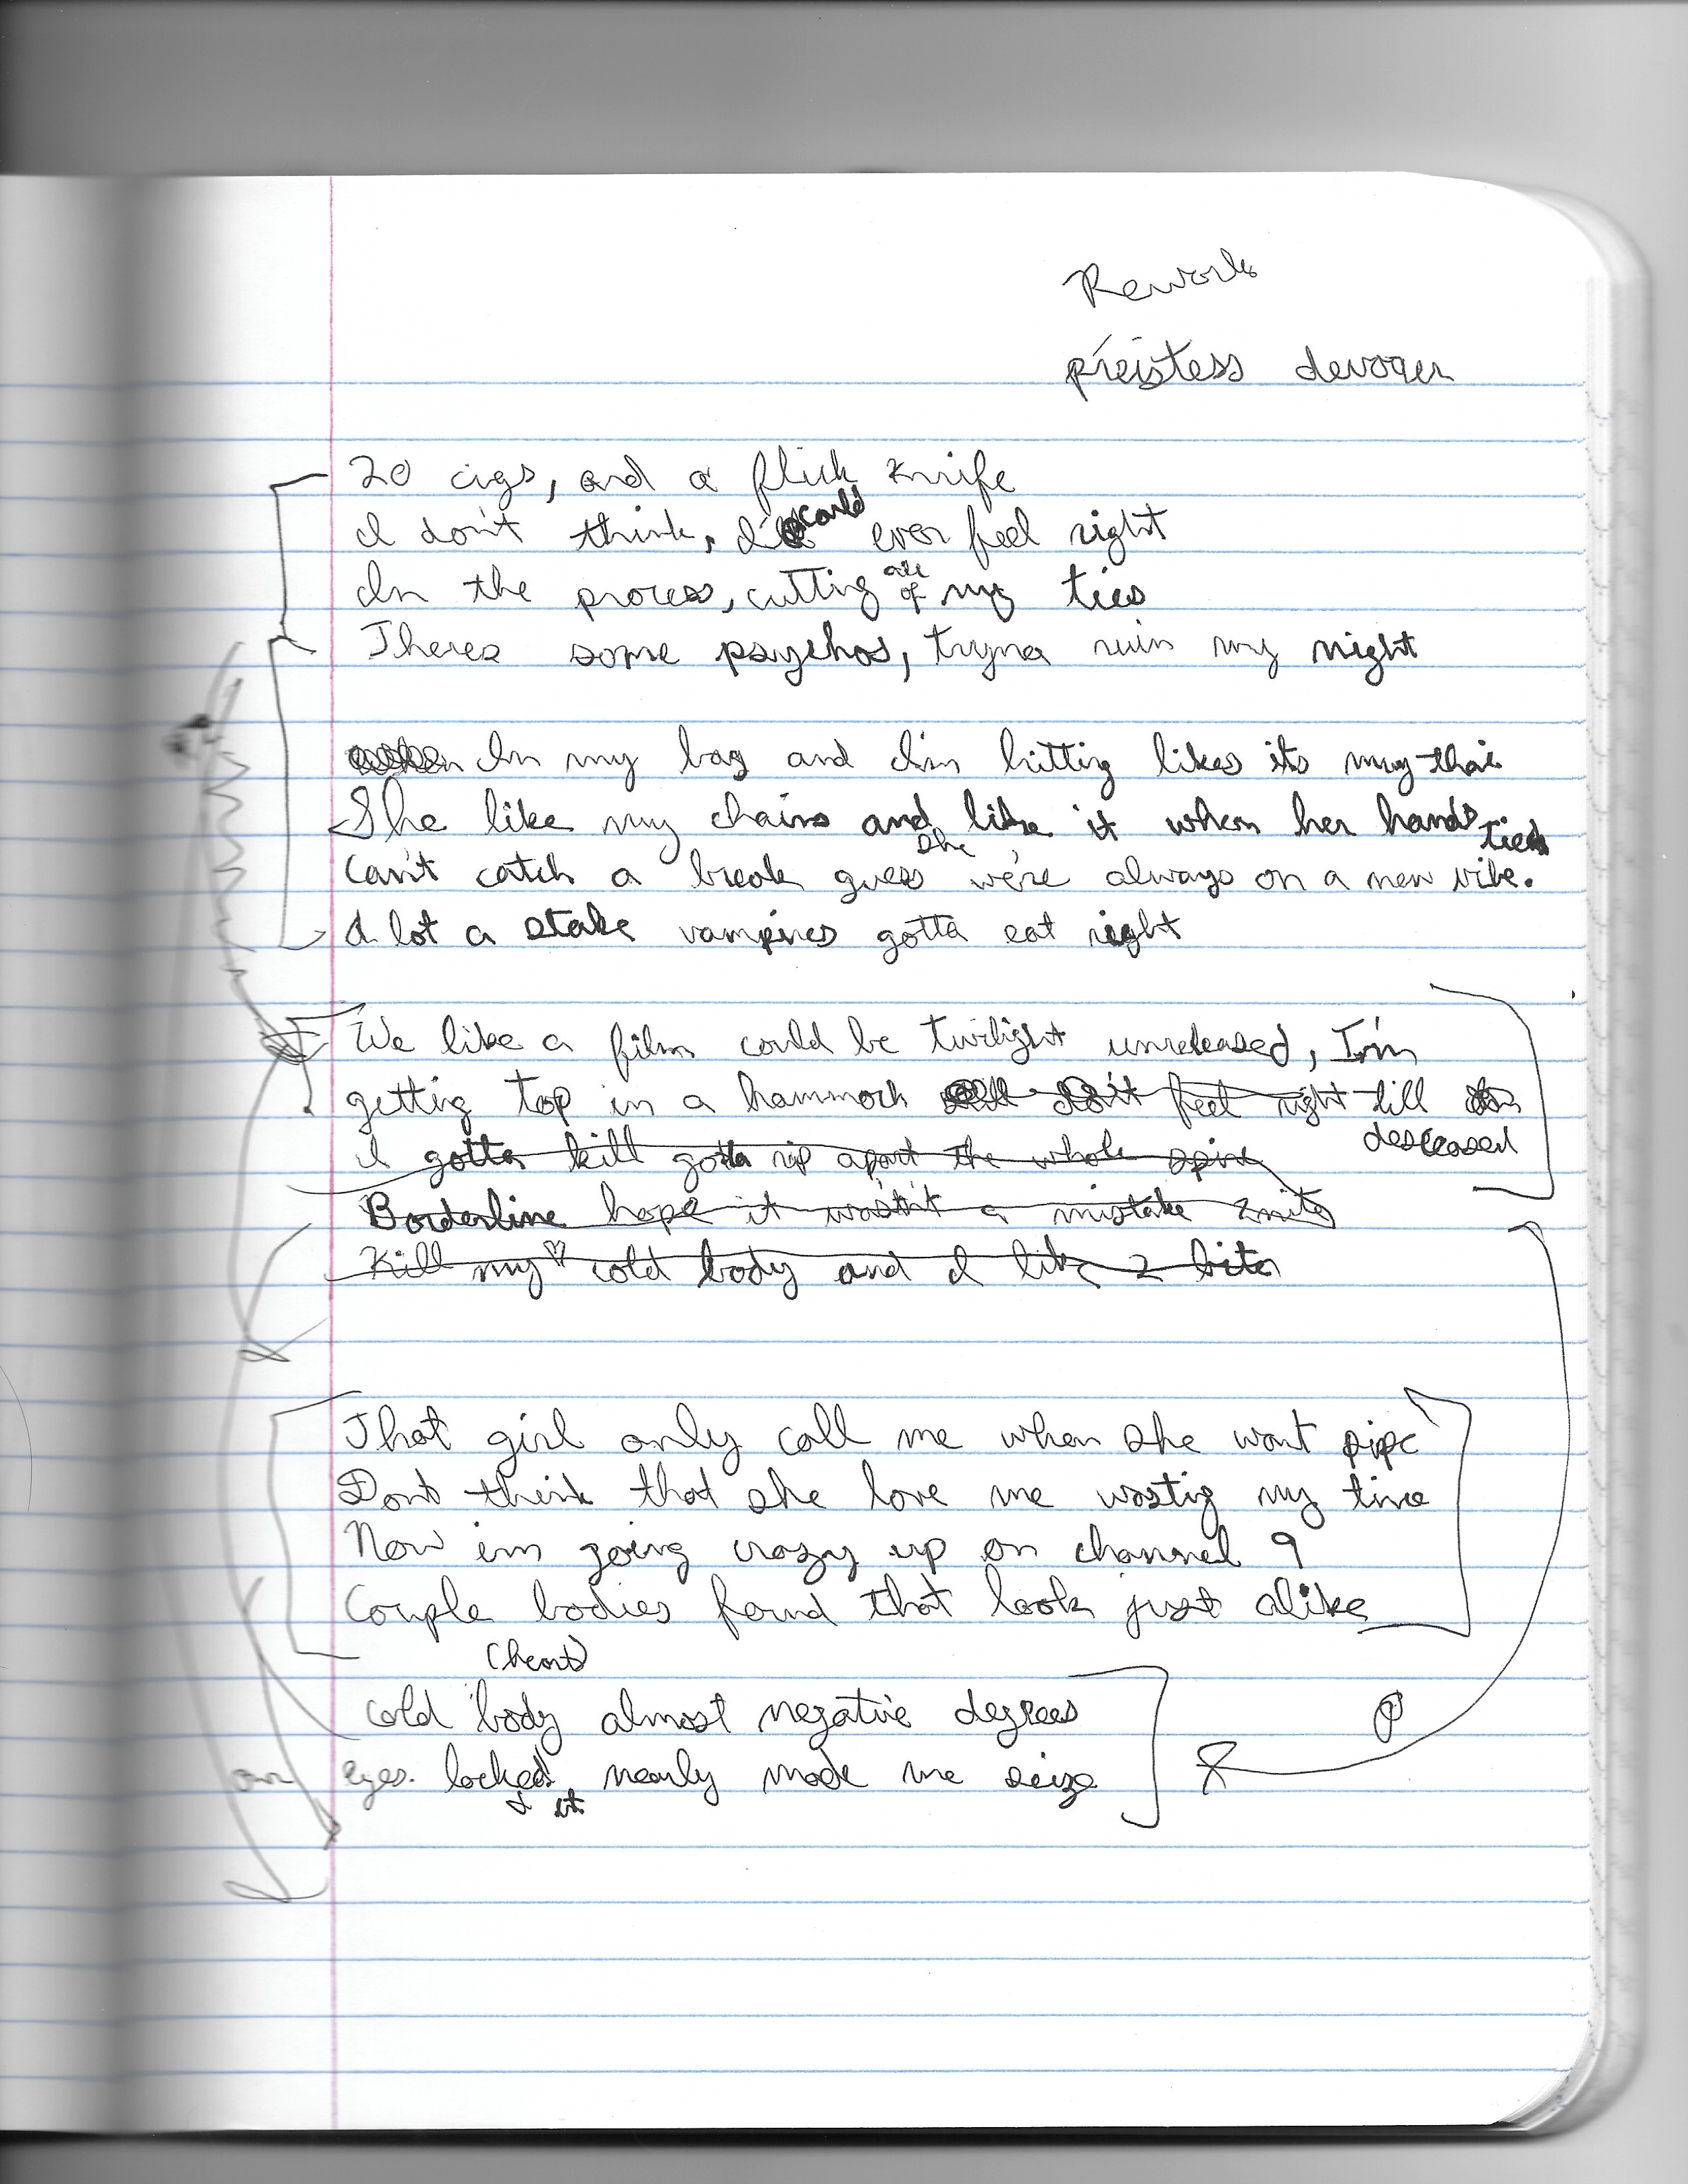 Rework
preistess devour
20 cigs, and a flick knife
I don't think, I could ever feel right
In the process, cutting all of my ties
Theres some psychos, tryna ruin my night
In my bag and I'm hitting likes its muy thai
She like my chains and like it when her hands tied
Can't catch a break guess she we're always on a new vibe.
A lot a stake vampires gotta eat right
We like a film could be twilight unreleased, I'm
getting top in a hammock feel right till
I gotta kill gotta rip apart the whole spine deseased
Borderline hope it wasn't a mistake
Kill my ♡ cold body and I like 2 bite
That girl only call me when she want pipe
Dont think that she love me wastig my time
Now im going crazy up on channel 9
Couple bodies found that look just alike
(heart)
cold body almost negative degrees
our eyes locked & it nearly made me seize